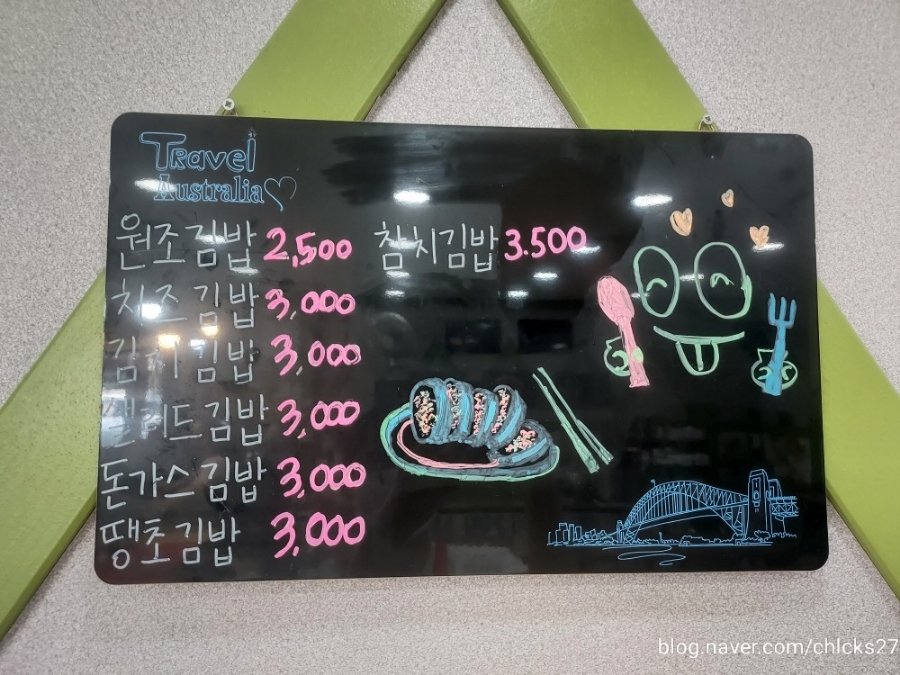 Travel
Australia
원조김밥 2,500
치즈김밥 3,000
김치김밥 3,000
샐러드김밥 3,000
돈가스김밥 3,000
땡초김밥 3,000
참치김밥 3.500
blog.naver.com/chlcks27